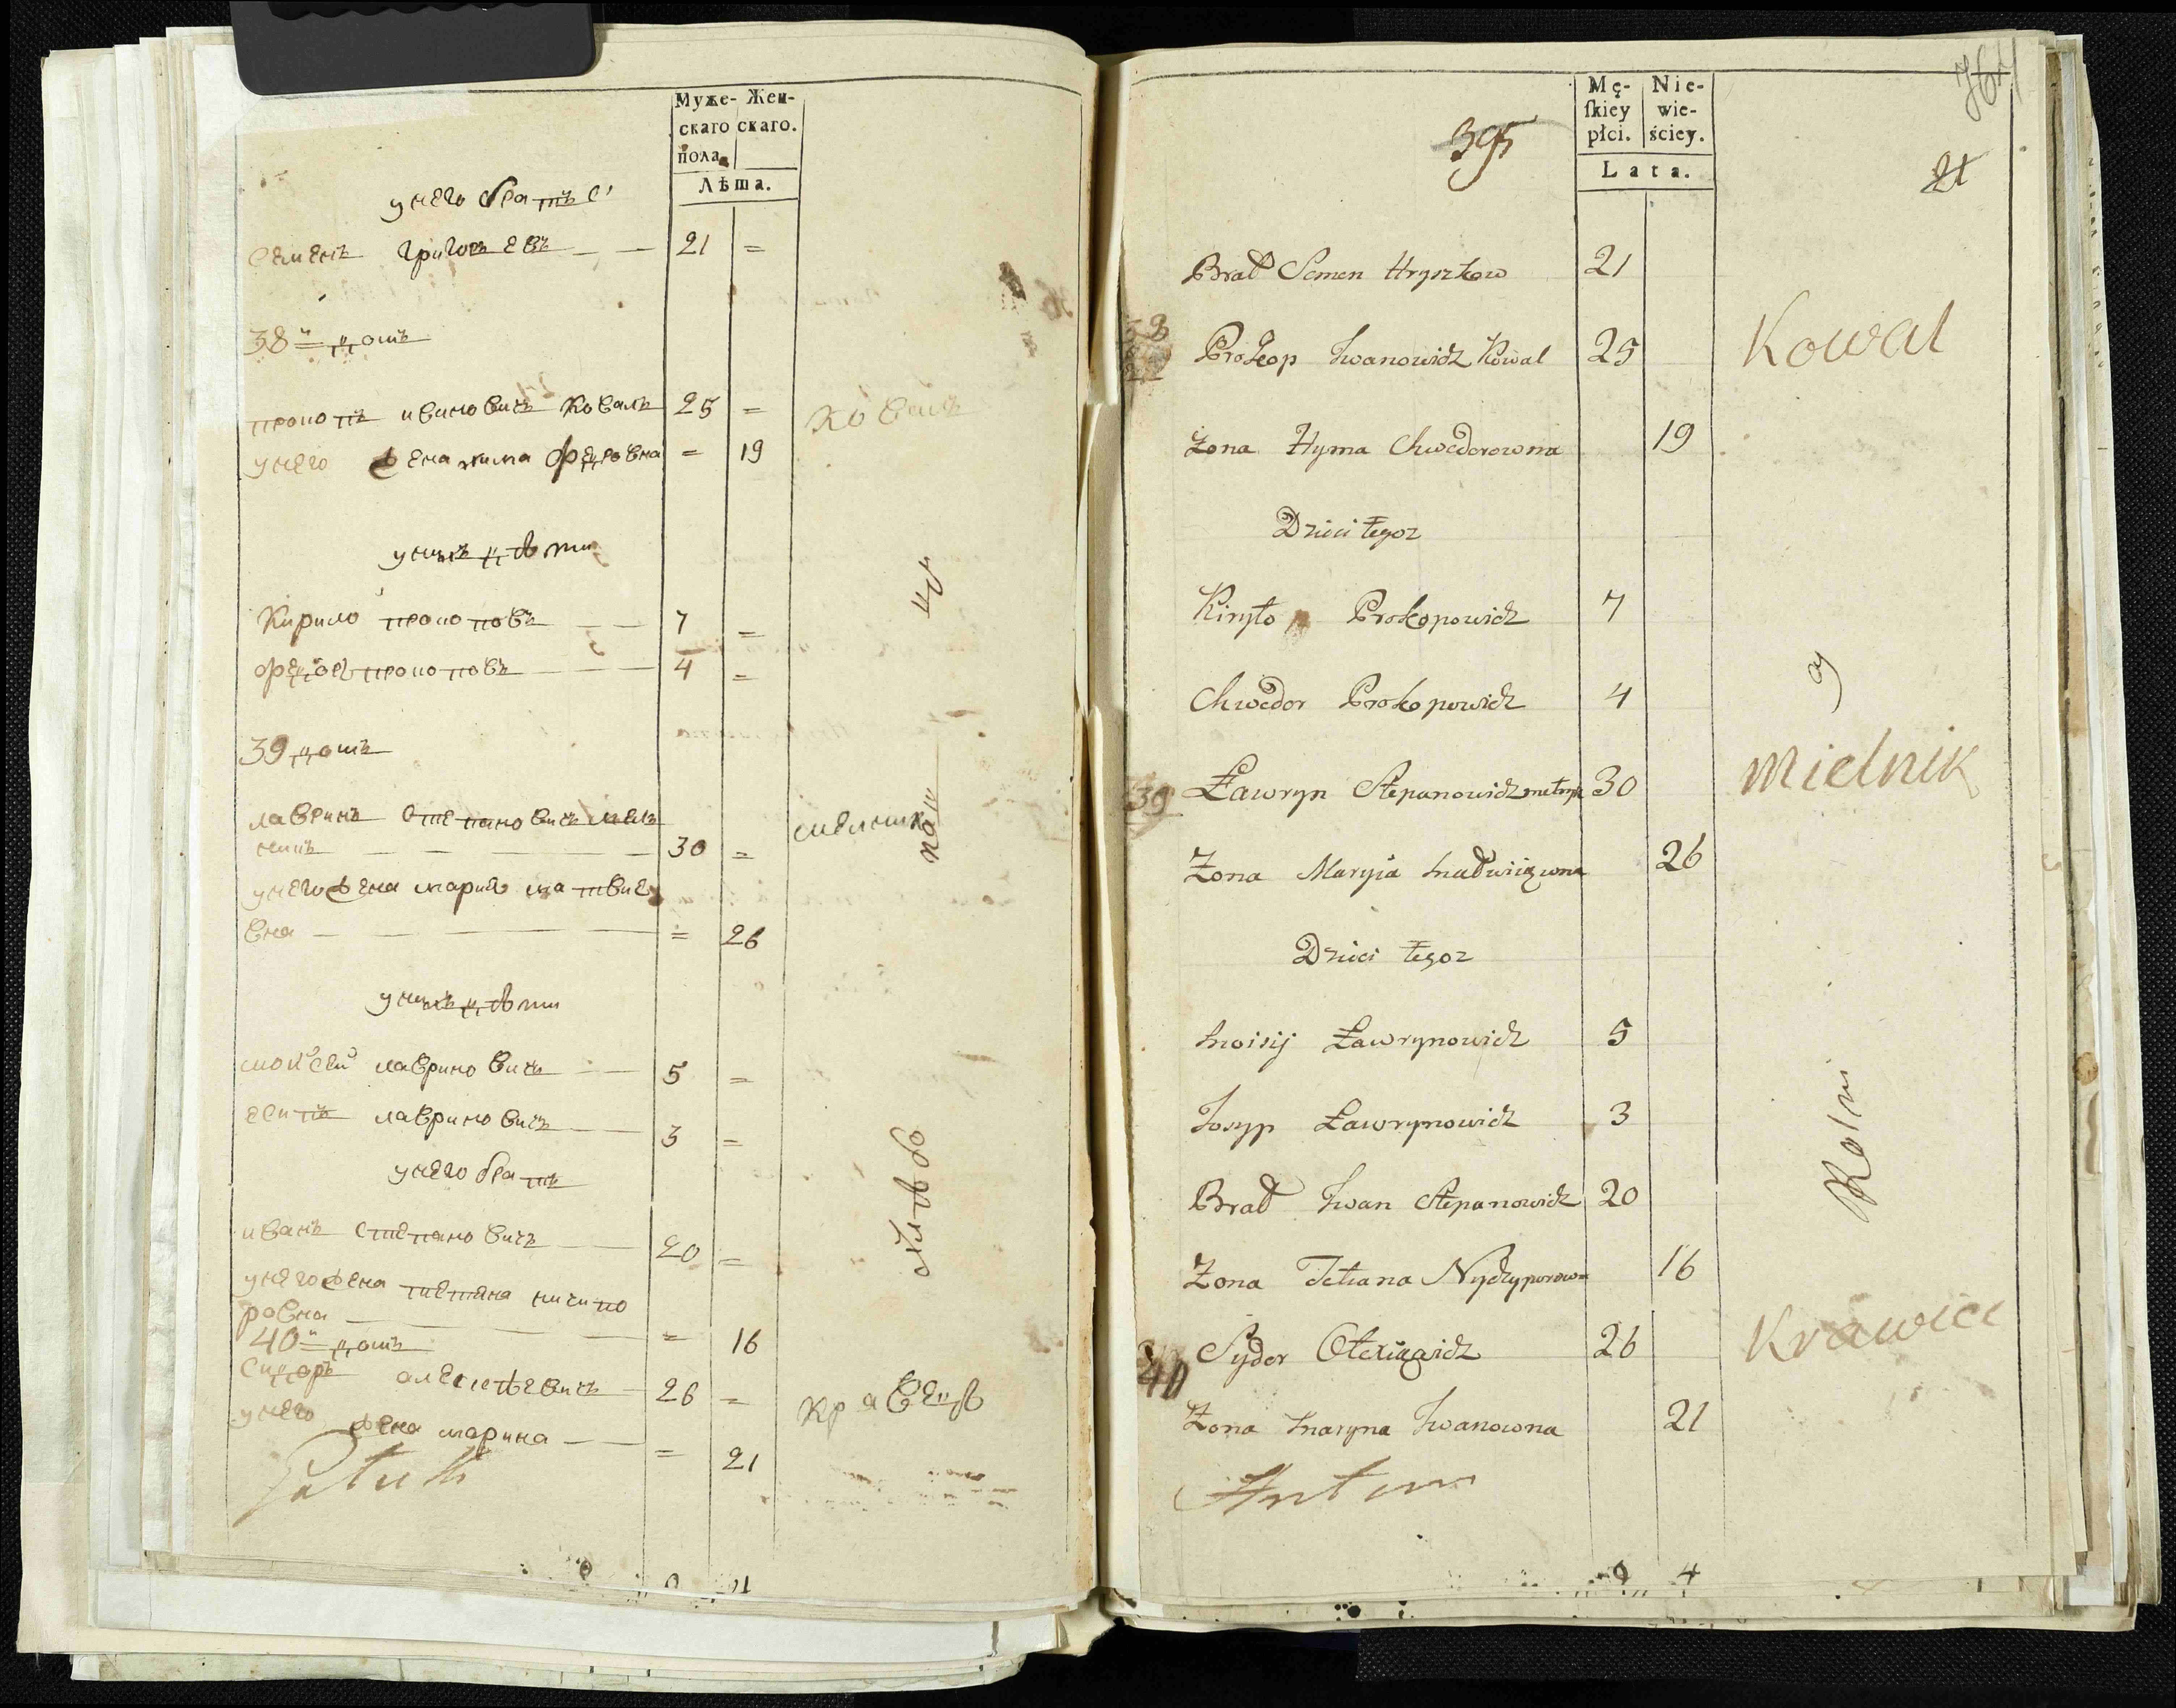 Муже- Жен-
скаго скаго.
пола
Лѣта.
у него братъ
Семенъ Григорьевъ 21 =
38й домъ
прокопъ ивановичъ Коваль 25 = Коваль
у него жена хима федоровна = 19
у нихъ дѣти
Кирило прокоповъ 7 =
федоръ прокоповъ 4 =
39 домъ
лавринъ степановичъ мель
никъ 30 = мелник
у него жена мария матвие
вна = 26
у нихъ дѣти
мойсей лавриновичъ 5 =
есипъ лавриновичъ 3 =
у него братъ
иванъ степановичъ 20 =
у него жена татиана ничипо
ровна = 16
40й домъ
сидоръ алексѣевичъ 26 = кравецъ
у него жена марина = 21
395
Mę-
ſkiey
płci.
Nie-
wie-
ściey.
Lata.
21
Brat Semen Hryszkow 21
38 Prokop Iwanowicz Kowal 25 Kowal
Żona Hyma Chwedorowna 19
Dzieci tegoz
Kiryło Prokopowicz 7
Chwedor Prokopowicz 4
39 Ławryn Stepanowicz melnyk 30 Mielnik
Żona Maryia Matwiiowna 26
Dzieci tegoz
Moisij Ławrynowicz 5
Josyp Ławrynowicz 3
Brat Iwan Stepanowicz 20
Żona Tetiana Nyczyporowna 16
40 Sydor Olexiiowicz 26 Krawiec
Żona Maryna Iwanowna 21
4